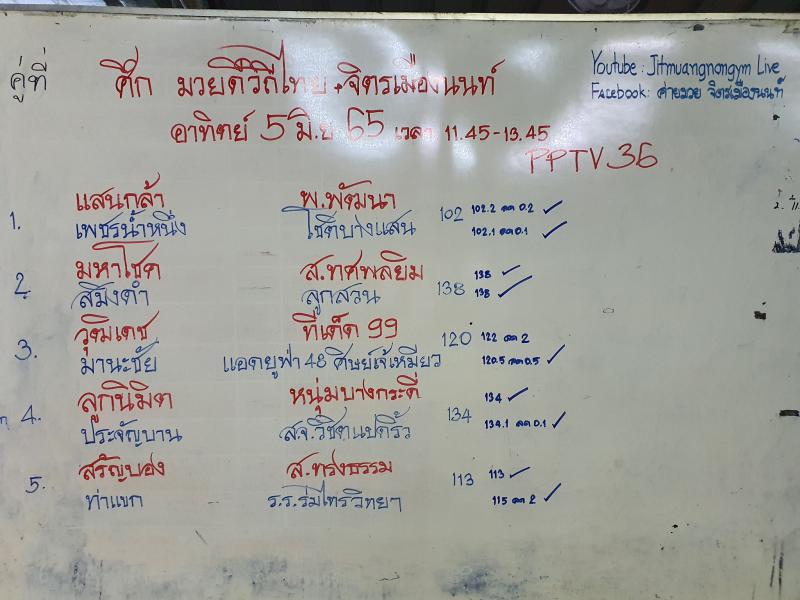 คู่ที่
ศึก มวยดีวิถีไทย + จิตรเมืองนนท์
Youtube : Jitmuangnongym Live
Facebook: ค่ายมวย จิตรเมืองนนท์
อาทิตย์ 5 มิ.ย 65 เวลา 11.45-13.45
PPTV36
1.
แสนกล้า พ.พัฒนา 102 102.2 ลด 0.2 ✓
เพชรน้ำหนึ่ง โชติบางแสน 102.1 ลด 0.1 ✓
2
มหาโชค ส.ทศพลยิม 138 138 ✓
สมิงดำ ลูกสวน 138 ✓
3.
วุฒิเดช ทีเด็ด 99 120 122 ลด 2
มานะชัย แอดยูฟ่า 48 ศิษย์เจ๊เหมียว 120.5 ลด 0.5 ✓
4.
ลูกนิมิต หนุ่มบางกระดี่ 134 134 ✓
ประจัญบาน ส.จ.วิชิตแปดริ้ว 134.1 ลด 0.1 ✓
5.
สรัญบอง ส.ทรงธรรม 113 113 ✓
ท่าแขก ร.ร.ร่มไทรวิทยา 115 ลด 2 ✓